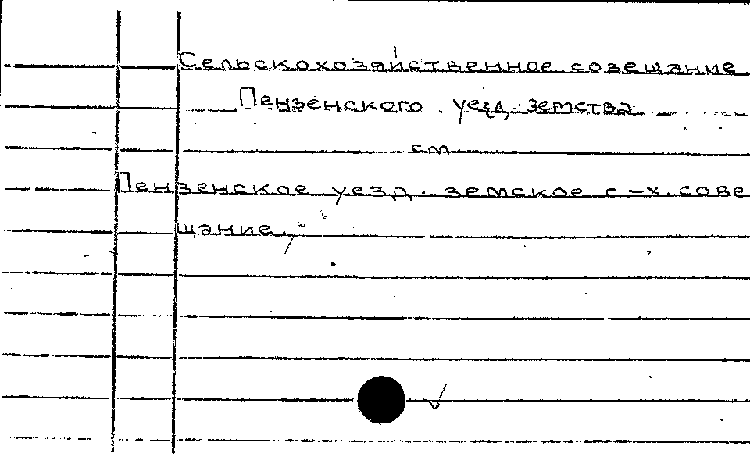 Сельскохозяйственное совещание
Пензенского уезд. земства
см
Пензенское уезд. земское с-х. сове
щание.